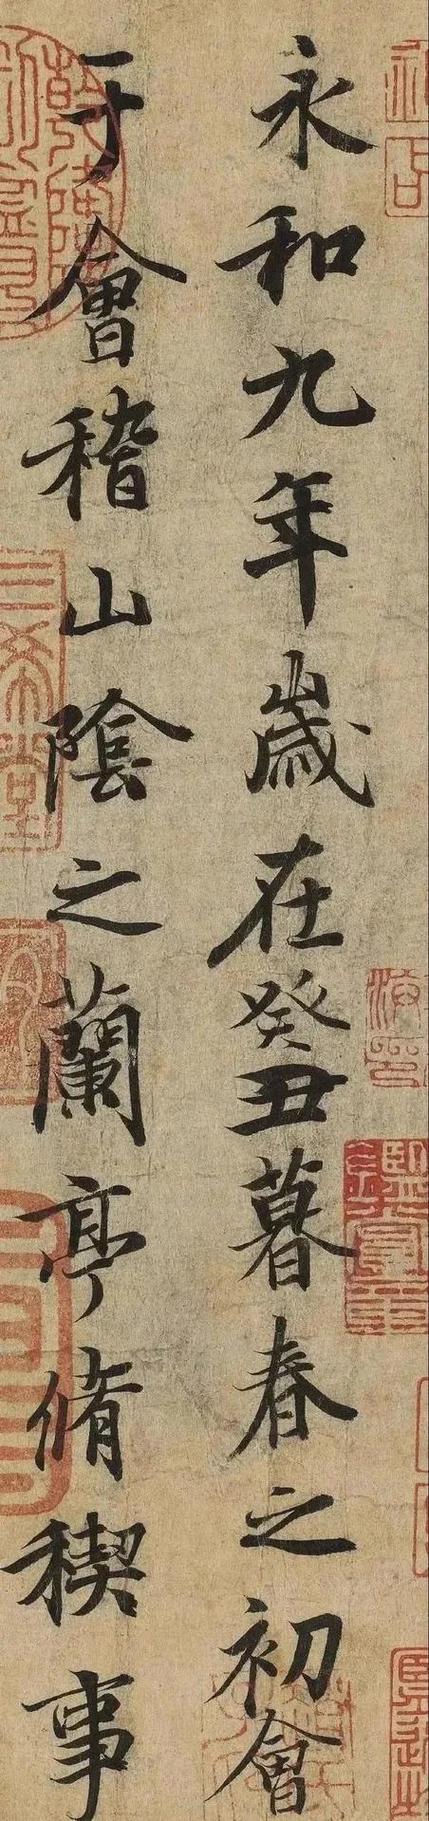 永和九年歲在癸丑暮春之初會
于會稽山陰之蘭亭脩稧事
乾隆
三希堂